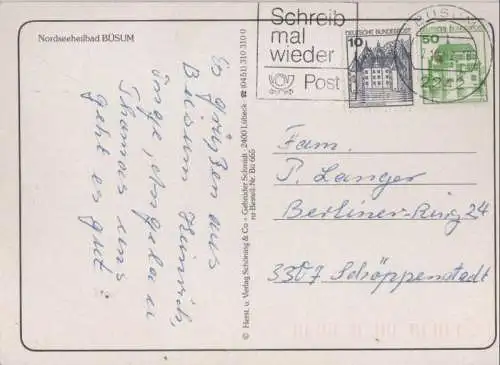 Nordseeheilbad BÜSUM
Es grüßen aus
Büsum Heinrich,
Inge, Angela u
Thomas uns
geht es gut!
© Herst. u. Verlag Schöning & Co + Gebrüder Schmidt · 2400 Lübeck · ☎ (0451) 310 310 0
Bestell-Nr. Bü 665
Schreib
mal
wieder
Post
10
DEUTSCHE BUNDESPOST
50
DEUTSCHE BUNDESPOST
BÜSUM
Fam.
P. Langer
Berliner-Ring 24
3307 Schöppenstedt